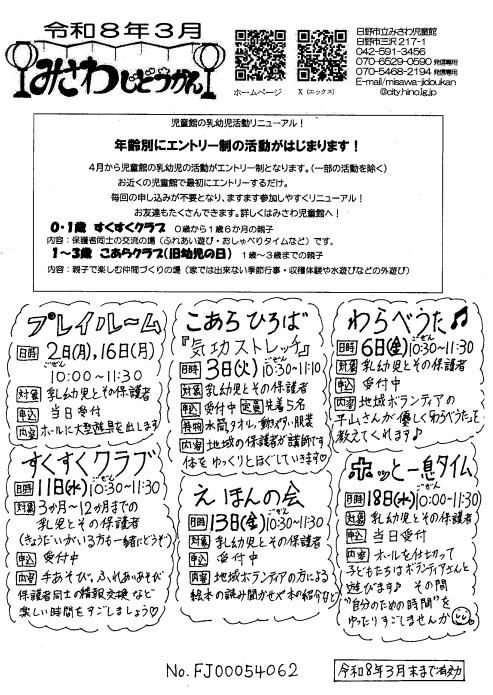 令和8年3月
みさわじどうかん
ホームページ
X (エックス)
日野市立みさわ児童館
日野市三沢217-1
042-591-3456
070-6529-0590 発信専用
070-5468-2194 発信専用
E-mail/misawa-jidoukan
@city.hino.lg.jp
児童館の乳幼児活動リニューアル！
年齢別にエントリー制の活動がはじまります！
4月から児童館の乳幼児の活動がエントリー制となります。(一部の活動を除く)
お近くの児童館で最初にエントリーするだけ。
毎回の申し込みが不要となり、ますます参加しやすくリニューアル！
お友達もたくさんできます。詳しくはみさわ児童館へ！
0・1歳 すくすくクラブ 0歳から1歳6か月の親子
内容：保護者同士の交流の場（ふれあい遊び・おしゃべりタイムなど）です。
1～3歳 こあらクラブ(旧幼児の日) 1歳～3歳までの親子
内容：親子で楽しむ仲間づくりの場（家では出来ない季節行事・収穫体験や水遊びなどの外遊び）
プレイルーム
日時 2日(月),16日(月)
ごぜん
10:00～11:30
対象 乳幼児とその保護者
申込 当日受付
内容 ホールに大型遊具を出します
こあらひろば
『気功ストレッチ』
ごぜん
日時 3日(火) 10:30～11:10
対象 乳幼児とその保護者
申込 受付中 定員 先着5名
持物 水筒,タオル,動きやすい服装
内容 地域の保護者が講師です
体をゆっくりとほぐしていきます♡
わらべうた♫
ごぜん
日時 6日(金) 10:30～11:30
対象 乳幼児とその保護者
申込 受付中
内容 地域ボランティアの
平山さんが優しくわらべうたを
教えてくれます♪
すくすくクラブ
ごぜん
日時 11日(水) 10:30～11:30
対象 3か月～12か月までの
乳児とその保護者
(きょうだいがいる方も一緒にどうぞ)
申込 受付中
内容 手あそび,ふれあいあそび
保護者同士の情報交換など
楽しい時間をすごしましょう♡
えほんの会
ごぜん
日時 13日(金) 10:30～11:30
対象 乳幼児とその保護者
申込 受付中
内容 地域ボランティアの方による
絵本の読み聞かせや本の紹介など
ホッと一息タイム
ごぜん
日時 18日(水) 10:00～11:30
対象 乳幼児とその保護者
申込 当日受付
内容 ホールを仕切って
子どもたちはボランティアさんと
遊びます♪ その間
"自分のための時間"を
ゆったりすごしませんか
No.FJ00054062
令和8年3月末まで有効